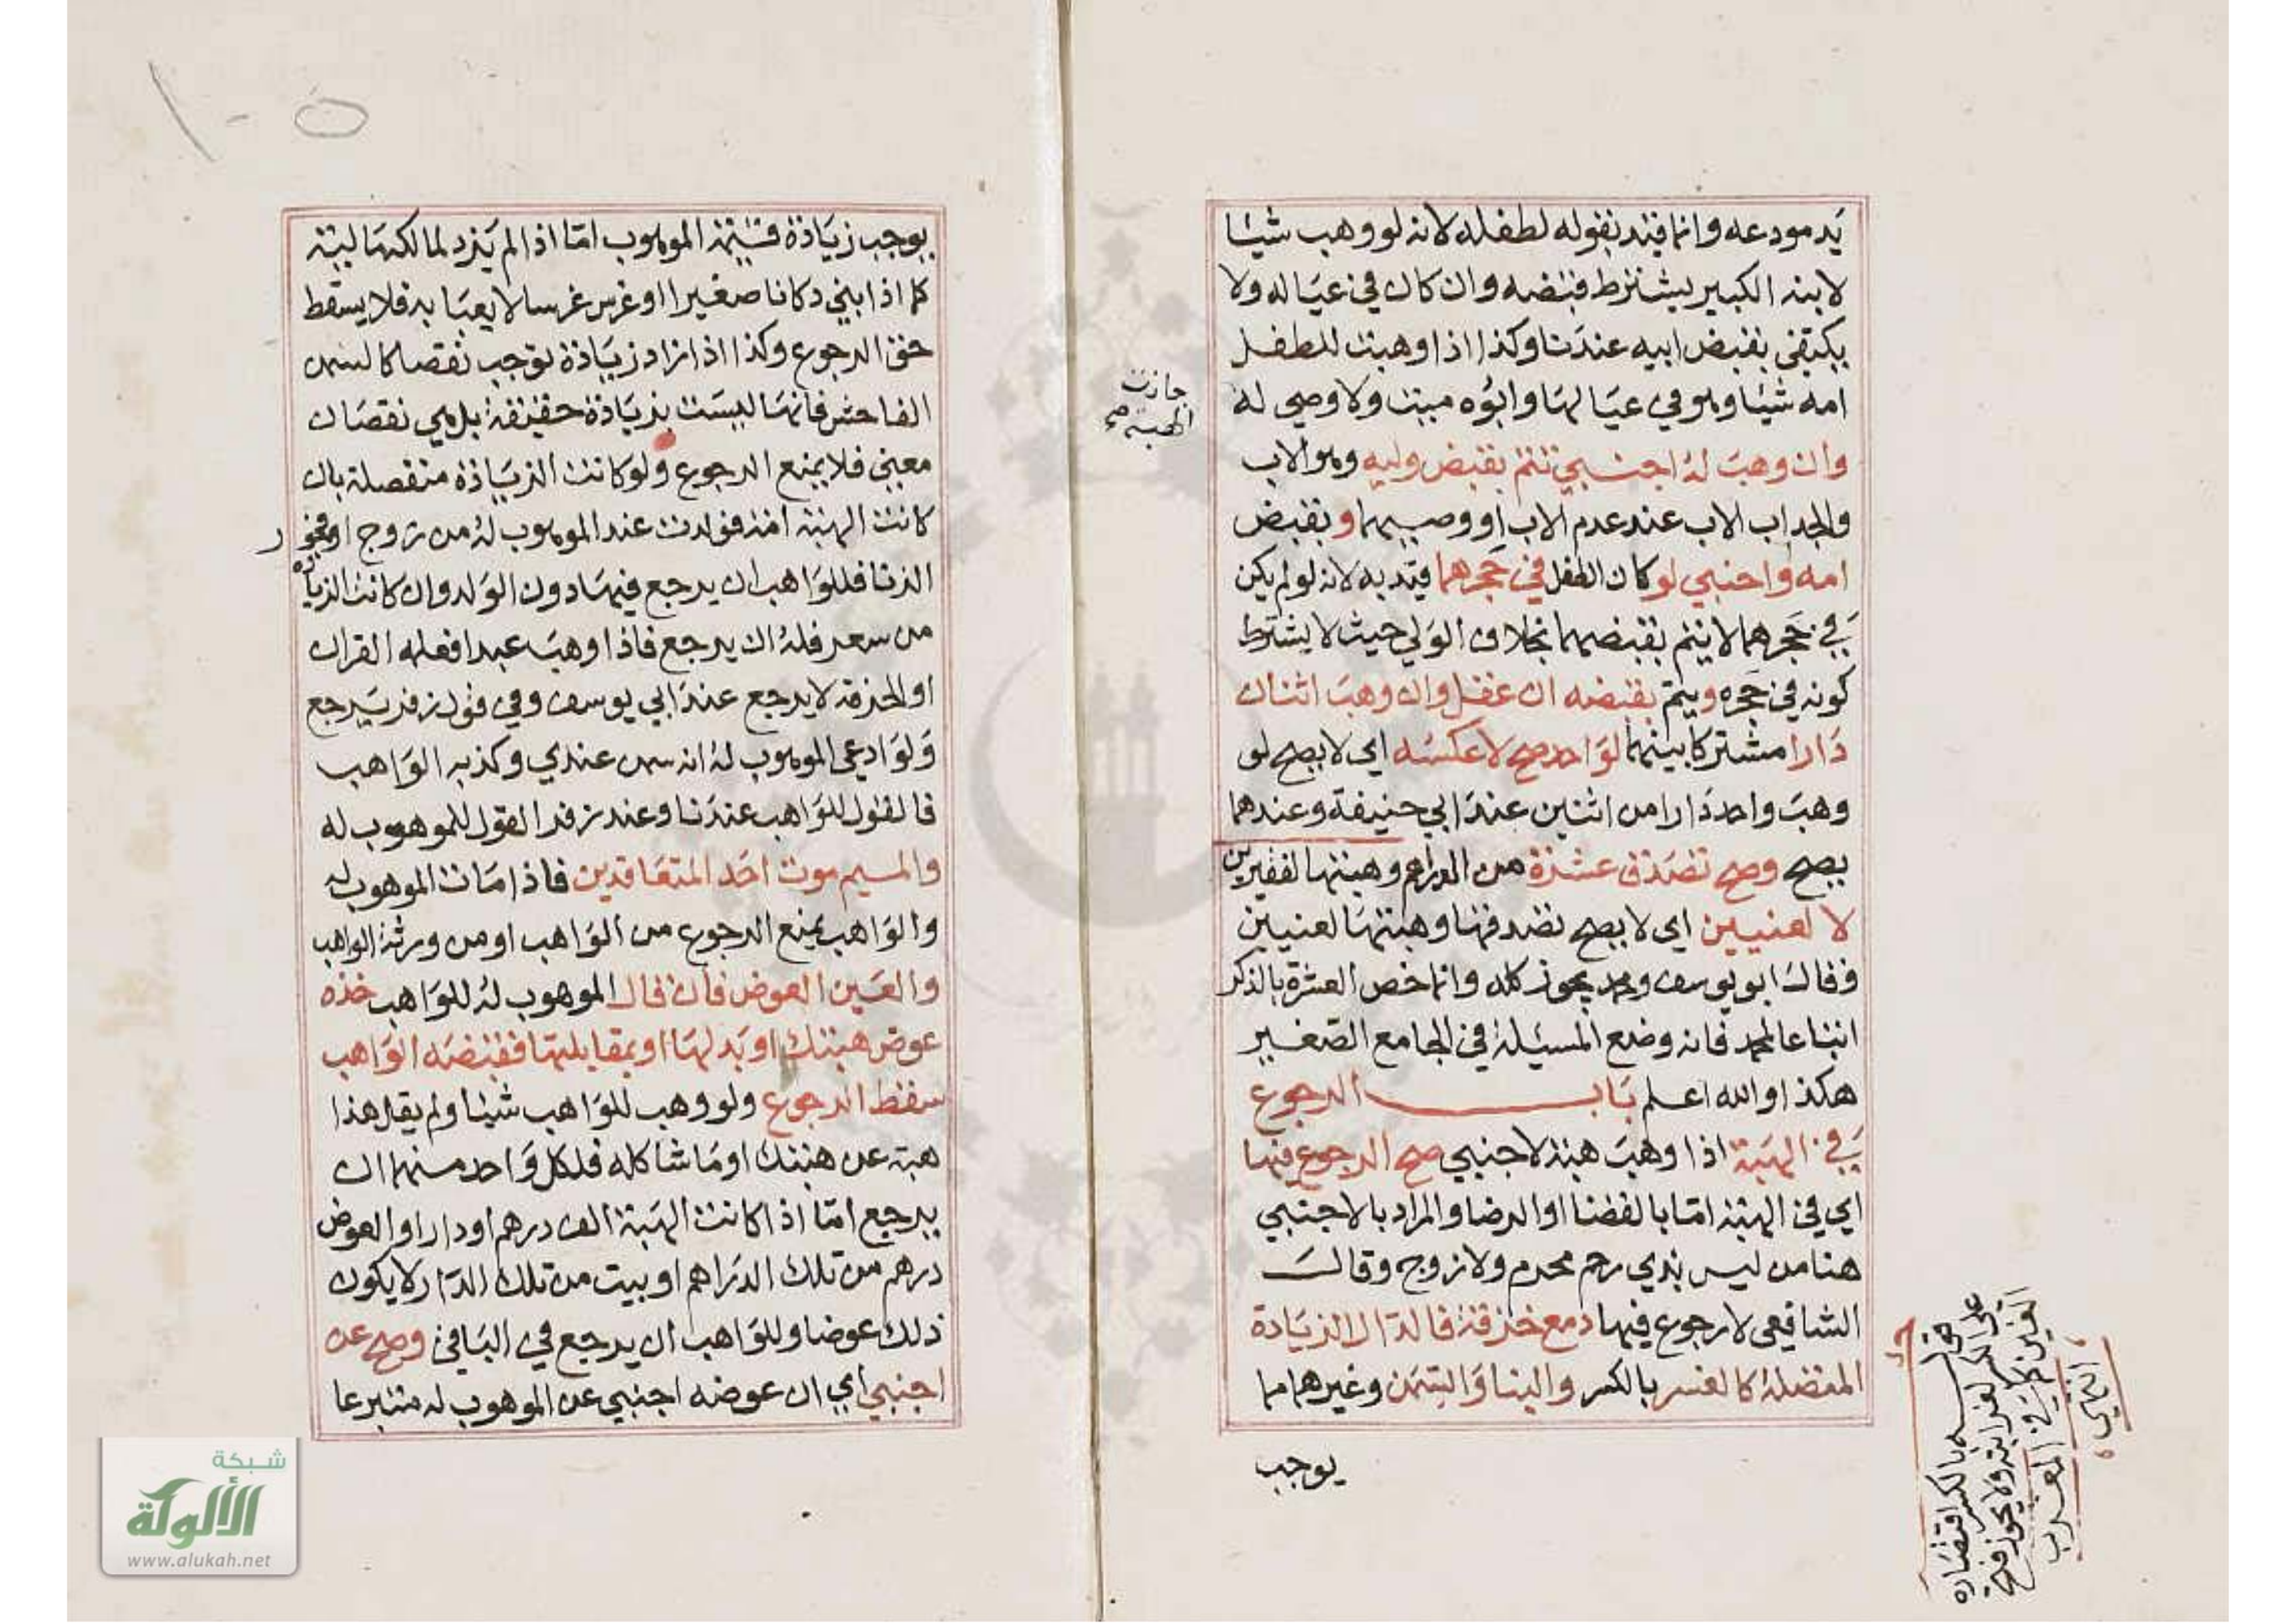 يد مودعه وانما قيد بقوله لطفله لانه لو وهب شيئا
لابنه الكبير يشترط قبضه وان كان في عياله ولا
يكتفي بقبض ابيه عندنا وكذا اذا وهبت للطفل
امه شيئا وهو في عيالها وابوه ميت ولا وصي له
جازت
الهبة صح
وان وهب له اجنبي تتم بقبض وليه وهو الاب
والجد اب الاب عند عدم الاب او وصيهما وبقبض
امه واجنبي لو كان الطفل في حجرهما قيد به لانه لو لم يكن
في حجرهما لا يتم بقبضهما بخلاف الولي حيث لا يشترط
كونه في حجره ويتم بقبضه ان عقل وان وهب اثنان
دارا مشتركا بينهما لواحد صح لا عكسه اي لا يصح لو
وهب واحد دارا من اثنين عند ابي حنيفة وعندهما
يصح وصح تصدق عشرة من الدراهم وهبتها لفقيرين
لا لغنيين اي لا يصح تصدقها وهبتها لغنيين
وقال ابو يوسف ومحمد يجوز كله وانما خص العشرة بالذكر
اتباعا لمحمد فانه وضع المسئلة في الجامع الصغير
هكذا والله اعلم باب الرجوع
في الهبة اذا وهب هبة لاجنبي صح الرجوع فيها
اي في الهبة اما بالقضا او الرضا والمراد بالاجنبي
هنا من ليس بذي رحم محرم ولا زوج وقال
الشافعي لا رجوع فيها دمع خزقه فالدال الزيادة
المتصلة كالغسر بالكسر والبنا والسمن وغيرهما مما
يوجب
على الكسر لغرابته ولا يجوز فتح
الغين في المغرب
انتهي
يوجب زيادة قيمة الموهوب اما اذا لم يزد لمالكها ليته
كما اذا بني دكانا صغيرا او غرس غرسا لا يعبا به فلا يسقط
حق الرجوع وكذا اذا زاد زيادة توجب نقصا كالسمن
الفاحش فانها ليست بزيادة حقيقة بل هي نقصان
معني فلا يمنع الرجوع ولو كانت الزيادة منفصلة بان
كانت الهبة امة فولدت عند الموهوب له من زوج او فجور
الزنا فللواهب ان يرجع فيها دون الولد وان كانت الزيادة
من سعر فله ان يرجع فاذا وهب عبدا فعلمه القران
او الحرفة لا يرجع عند ابي يوسف وفي قول زفر يرجع
ولو ادعي الموهوب له انه سمن عندي وكذبه الواهب
فالقول للواهب عندنا وعند زفر القول للموهوب له
والميم موت احد المتعاقدين فاذا مات الموهوب له
والواهب يمنع الرجوع من الواهب او من ورثة الواهب
والعين العوض فان قال الموهوب له للواهب خذه
عوض هبتك او بدلها او بمقابلتها فقبضه الواهب
سقط الرجوع ولو وهب للواهب شيئا ولم يقل هذا
هبة عن هبتك او ما شاكله فلكل واحد منهما ان
يرجع اما اذا كانت الهبة الف درهم او دارا والعوض
درهم من تلك الدراهم او بيت من تلك الدار لا يكون
ذلك عوضا وللواهب ان يرجع في الباقي وصح عن
اجنبي اي ان عوضه اجنبي عن الموهوب له متبرعا
شبكة
الألوكة
www.alukah.net